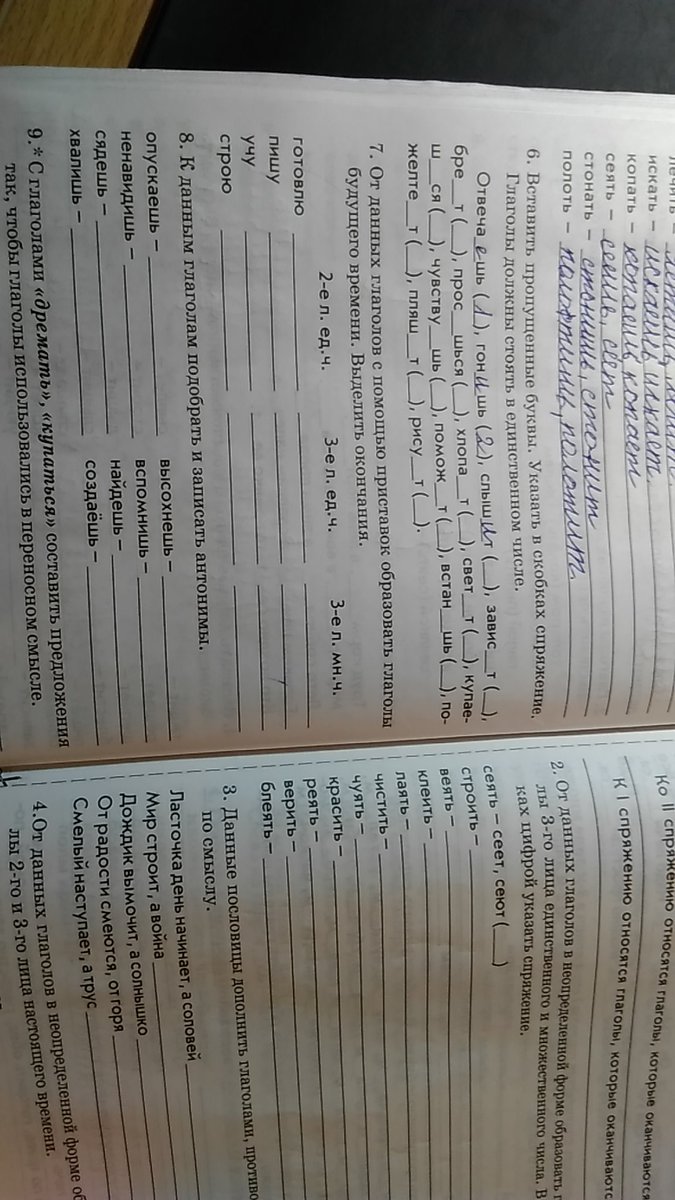 лечить –
искать – искаешь, искает
копать – копаешь, копает
сеять – сеешь, сеет
стонать – стонишь, стонит
полоть –
6. Вставить пропущенные буквы. Указать в скобках спряжение.
Глаголы должны стоять в единственном числе.
Отвеча_е_шь (_1_), гон_и_шь (_2_), слыш_и_т (__), завис__т (__),
бре__т (__), прос__шься (__), хлопа__т (__), свет__т (__), купае-
ш__ся (__), чувству__шь (__), помож__т (__), встан__шь (__), по-
желте__т (__), пляш__т (__), рису__т (__).
7. От данных глаголов с помощью приставок образовать глаголы
будущего времени. Выделить окончания.
2-е л. ед.ч. 3-е л. ед.ч. 3-е л. мн.ч.
готовлю
пишу
учу
строю
8. К данным глаголам подобрать и записать антонимы.
опускаешь – высохнешь –
ненавидишь – вспомнишь –
сядешь – найдешь –
хвалишь – создаёшь –
9.* С глаголами «дремать», «купаться» составить предложения
так, чтобы глаголы использовались в переносном смысле.
Ко II спряжению относятся глаголы, которые оканчиваются
К I спряжению относятся глаголы, которые оканчиваютс
2. От данных глаголов в неопределенной форме образовать г
лы 3-го лица единственного и множественного числа. В
ках цифрой указать спряжение.
сеять – сеет, сеют (__)
строить –
веять –
клеить –
лаять –
чистить –
чуять –
красить –
реять –
верить –
блеять –
3. Данные пословицы дополнить глаголами, противо
по смыслу.
Ласточка день начинает, а соловей
Мир строит, а война
Дождик вымочит, а солнышко
От радости смеются, от горя
Смелый наступает, а трус
4. От данных глаголов в неопределенной форме об
лы 2-го и 3-го лица настоящего времени.